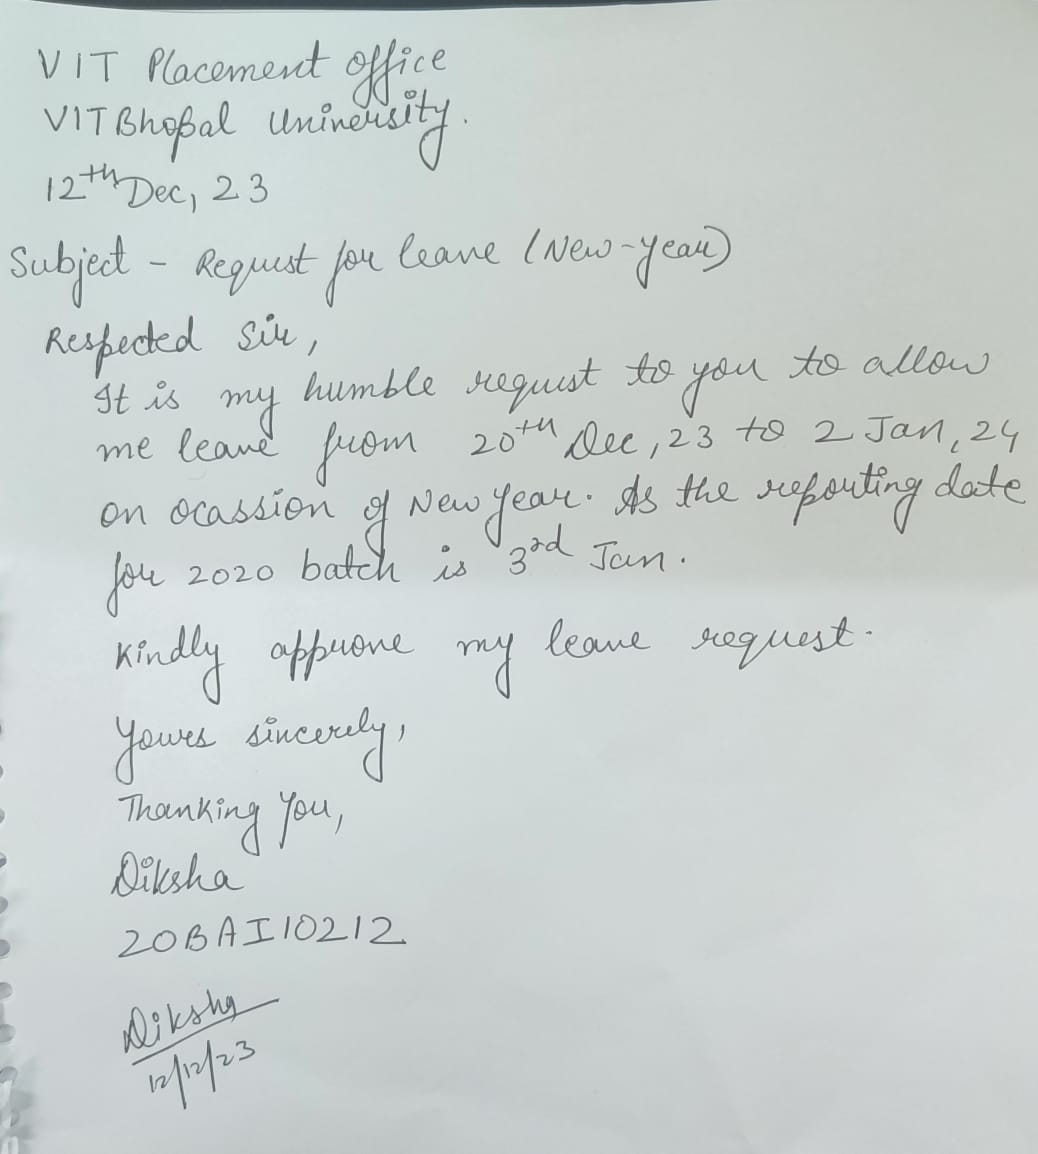 VIT Placement office
VIT Bhopal University.
12th Dec, 23
Subject - Request for leave (New-year)
Respected Sir,
It is my humble request to you to allow
me leave from 20th Dec, 23 to 2 Jan, 24
on ocassion of New Year. As the reporting date
for 2020 batch is 3rd Jan.
Kindly approve my leave request.
Yours sincerely,
Thanking You,
Diksha
20BAI10212
Diksha
12/12/23